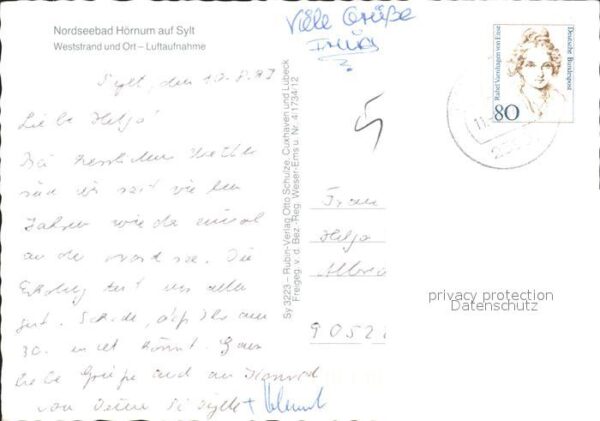 Nordseebad Hörnum auf Sylt
Weststrand und Ort – Luftaufnahme
Viele Grüße
Sylt, den 10.8.97
Liebe Helja!
Bei herrlichem Wetter
sind wir seit vielen
Jahren wieder einmal
an der Nordsee. Die
Erholung tut uns allen
gut. Schade, daß Ihr am
30. nicht könnt. Ganz
liebe Grüße auch an
von Deiner
Sy 3223 – Rubin-Verlag Otto Schulze, Cuxhaven und Lübeck
Freigeg. v. d. Bez.-Reg. Weser-Ems u. Nr. 41734-12
Deutsche Bundespost
Rahel Varnhagen von Ense
80
Frau
Helja
9052
privacy protection
Datenschutz